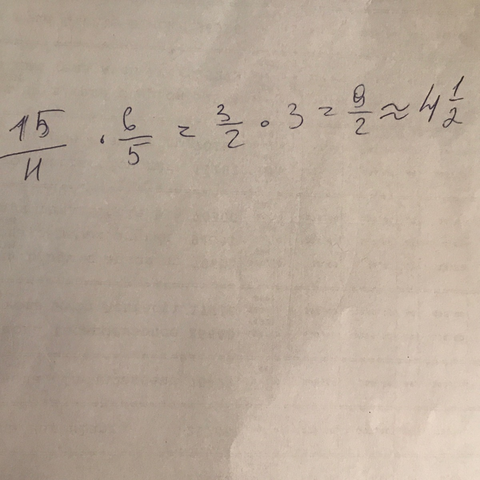 15/4 · 6/5 = 3/2 · 3 = 9/2 ≈ 4 1/2